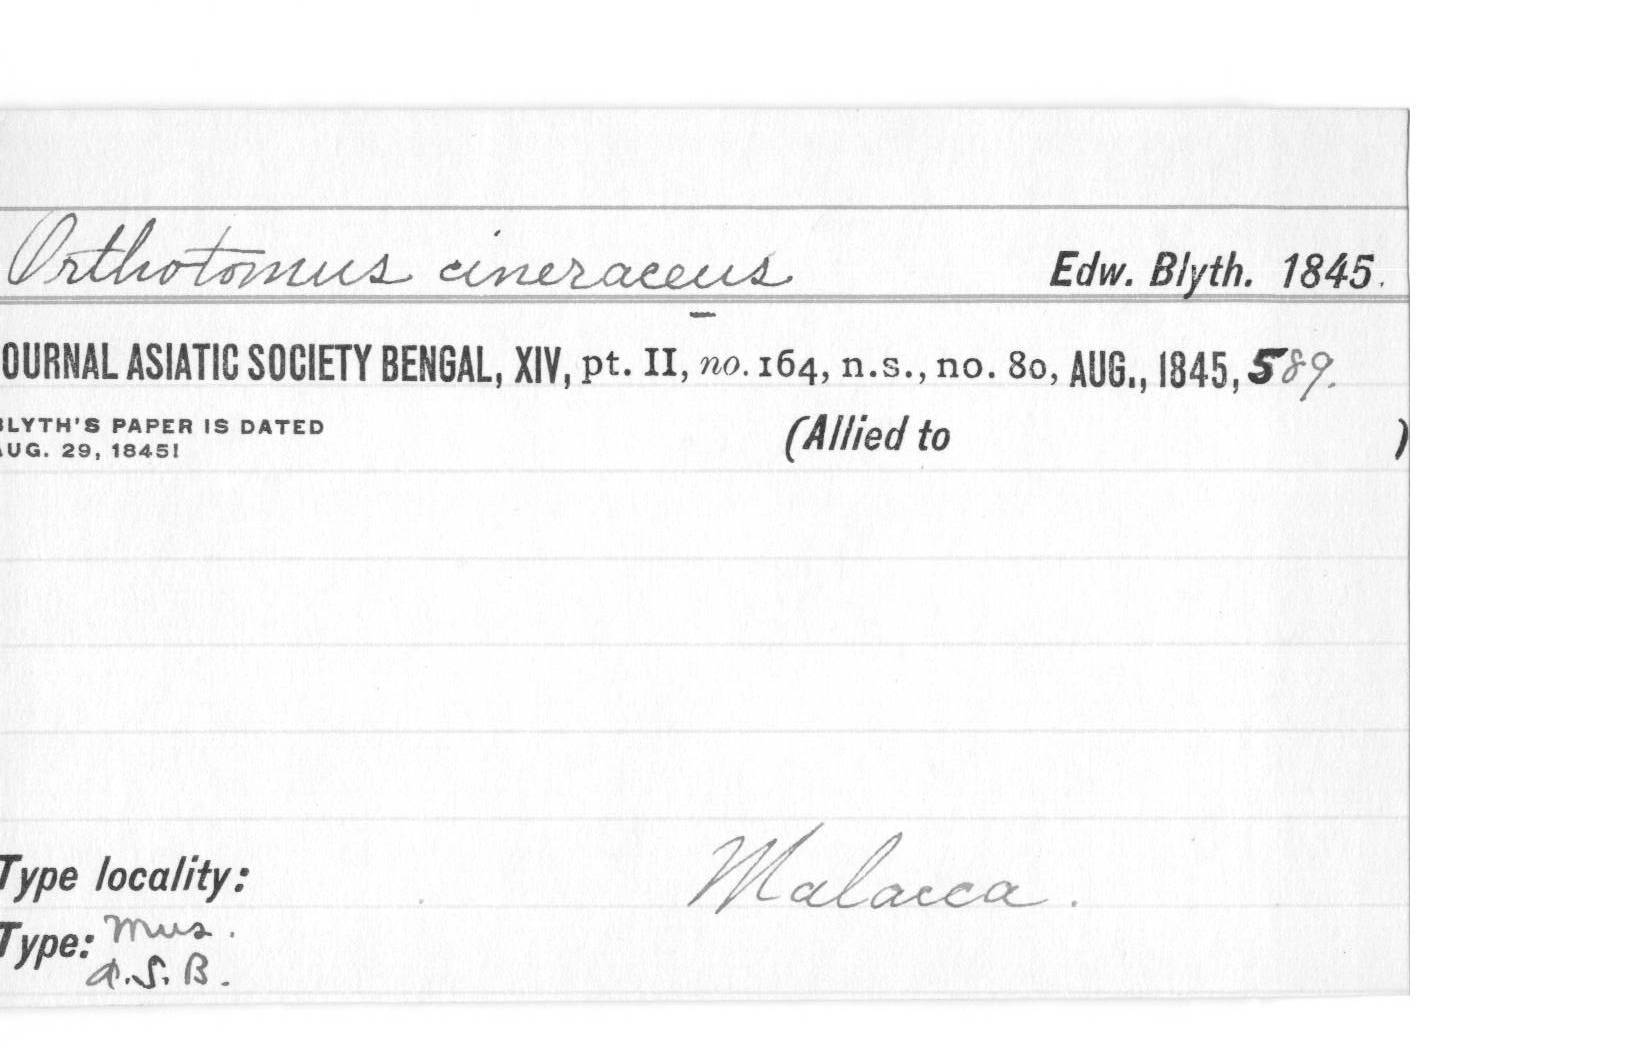 Orthotomus cineraceus Edw. Blyth. 1845.
OURNAL ASIATIC SOCIETY BENGAL, XIV, pt. II, no. 164, n.s., no. 80, AUG., 1845, 589.
BLYTH'S PAPER IS DATED (Allied to )
AUG. 29, 1845!
Type locality: Malacca.
Type: Mus.
A.S.B.